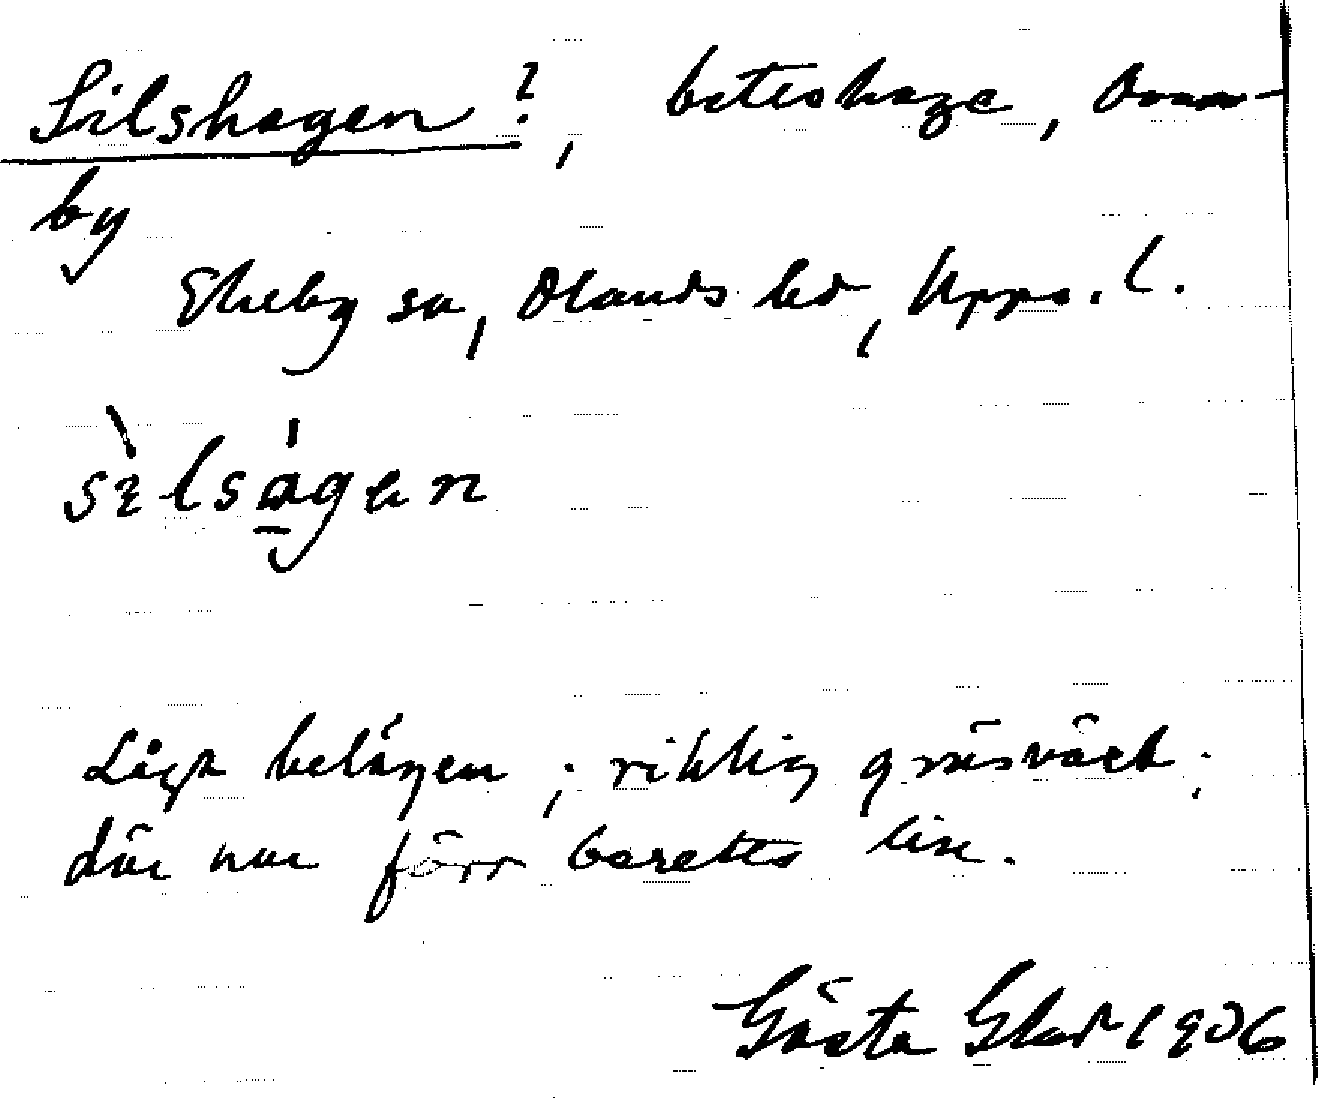 Silshagen?, beteshage,
by
Ekeby sn, Olands hd, Upps. l.
sìlságen
Lågt belägen; riklig gräsväxt;
där har förr beretts lin.
Gösta Glad 1906